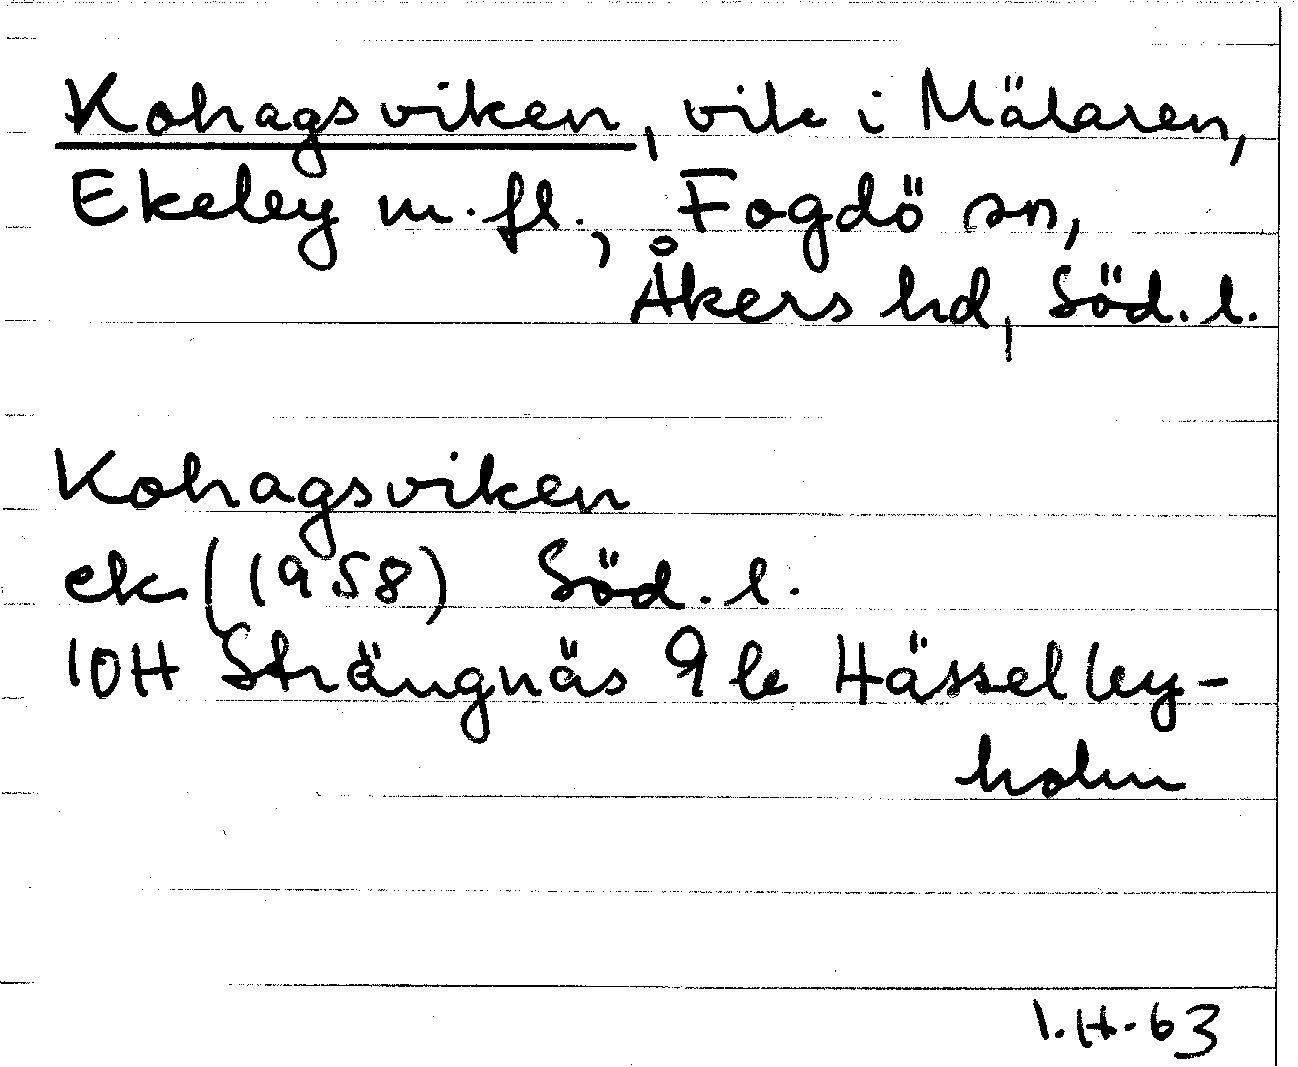 Kohagsviken, vik i Mälaren,
Ekeby m.fl., Fogdö sn,
Åkers hd, Söd. l.
Kohagsviken
ek (1958) Söd. l.
10H Strängnäs 9 b Hässelby-
holm
I.H. 63